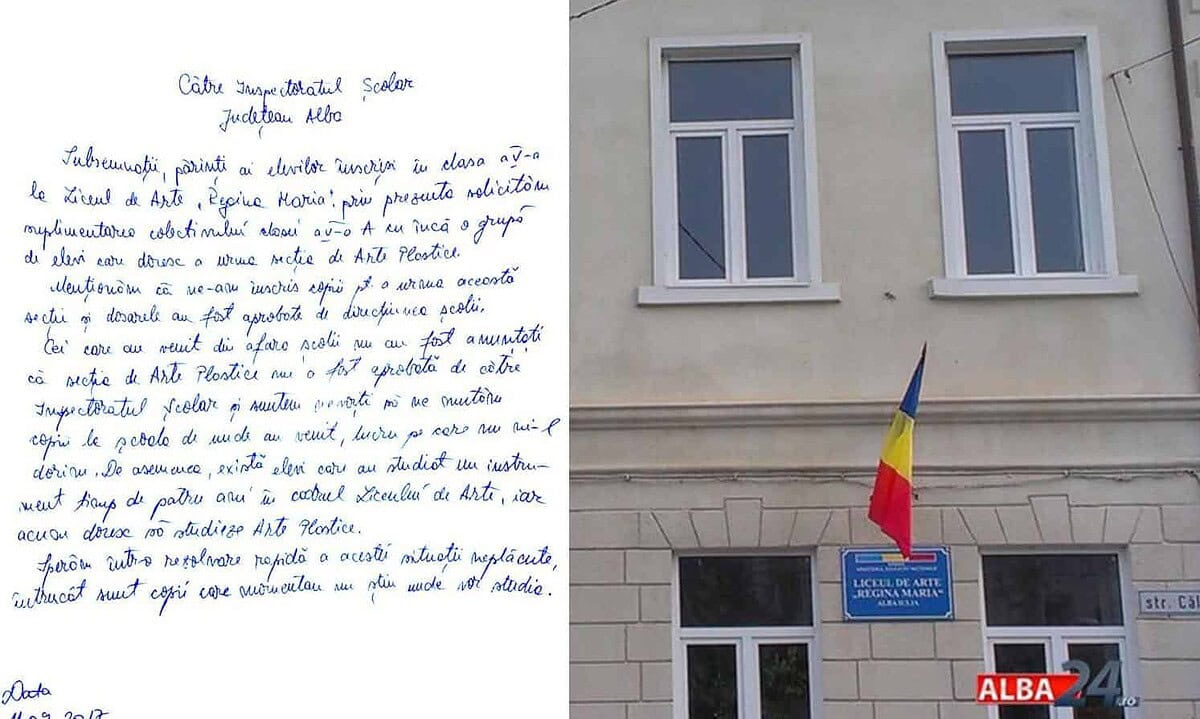 Către Inspectoratul Școlar
Județean Alba
Subsemnații, părinți ai elevilor înscriși în clasa a V-a
la Liceul de Arte „Regina Maria", prin prezenta solicităm
suplimentarea colectivului clasei a V-a A cu încă o grupă
de elevi care doresc a urma secția de Arte Plastice.
Menționăm că ne-am înscris copiii pt. a urma această
secție și dosarele au fost aprobate de direcțiunea școlii.
Cei care au venit din afara școlii nu au fost anunțați
că secția de Arte Plastice nu a fost aprobată de către
Inspectoratul Școlar și suntem nevoiți să ne mutăm
copiii la școala de unde au venit, lucru pe care nu ni-l
dorim. De asemenea, există elevi care au studiat un instru-
ment timp de patru ani în cadrul Liceului de Arte, iar
acum doresc să studieze Arte Plastice.
Sperăm într-o rezolvare rapidă a acestei situații neplăcute,
întrucât sunt copii care momentan nu știu unde vor studia.
Data
2017
MINISTERUL EDUCAȚIEI NAȚIONALE
LICEUL DE ARTE
„REGINA MARIA"
ALBA IULIA
str. Căl
ALBA24.ro